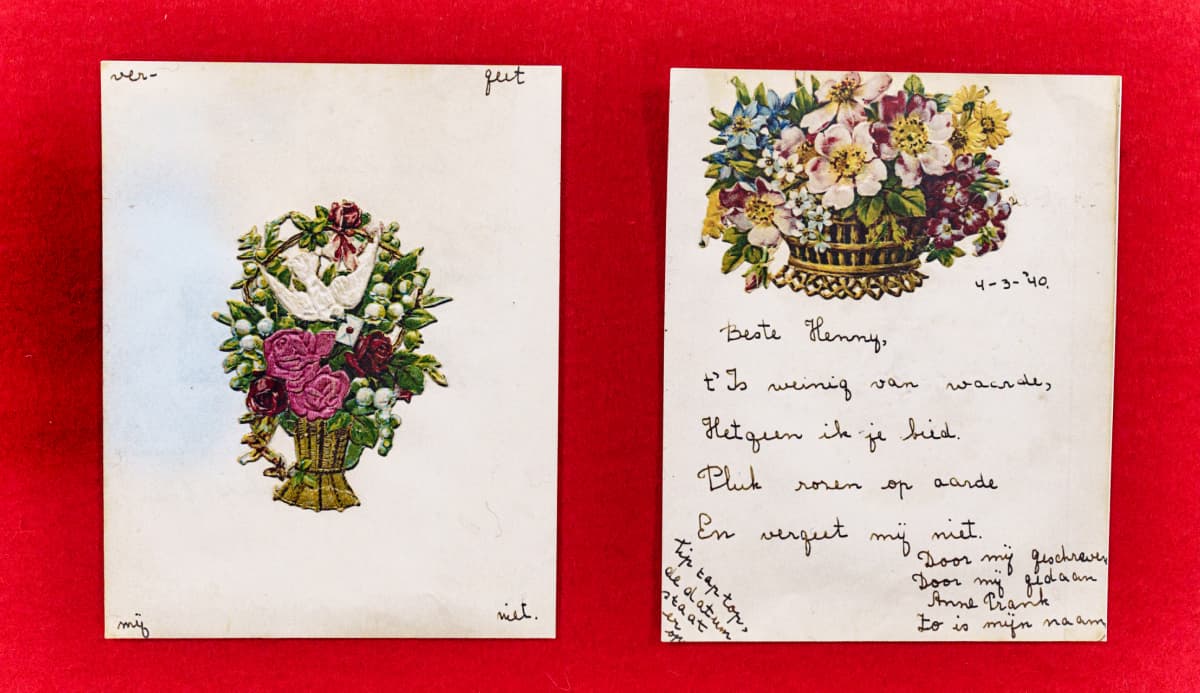 ver-
geet
mij
niet.
4-3-'40.
Beste Henny,
t'Is weinig van waarde,
Hetgeen ik je bied.
Pluk rozen op aarde
En vergeet mij niet.
Door mij geschreven
Door mij gedaan
Anne Frank
Zo is mijn naam
tip tap top,
de datum
staat
er op